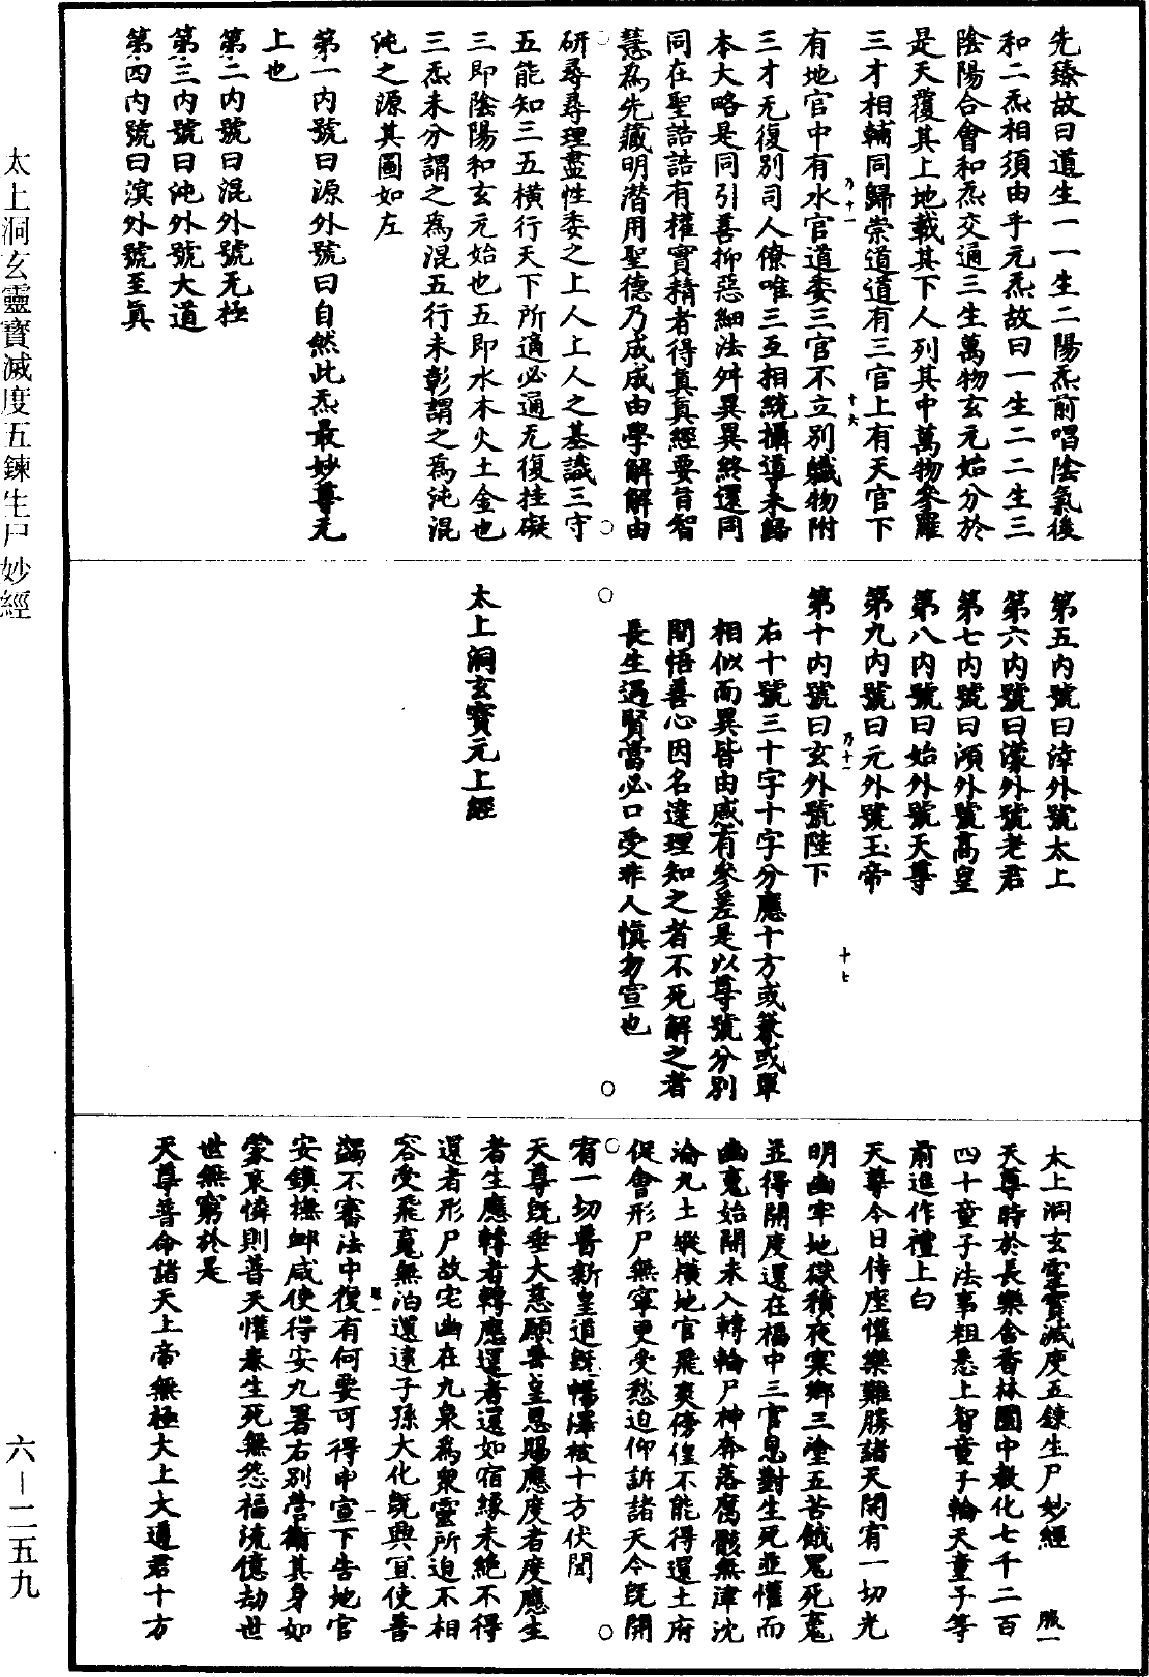 先臻故曰道生一一生二陽炁前唱陰氣後
和二炁相須由乎元炁故曰一生二二生三
陰陽合會和炁交通三生萬物玄元始分於
是天覆其上地載其下人列其中萬物參羅
三才相輔同歸崇道道有三官上有天官下
有地官中有水官道委三官不立別職物附
三才无復別司人僚唯三互相統攝導未歸
本大略是同引善抑惡細法舛異異終還同
同在聖誥誥有權實精者得真真經要旨智
慧為先藏明潜用聖德乃成成由學解解由
研尋尋理盡性委之上人上人之基識三守
五能知三五橫行天下所適必通无復挂礙
三即陰陽和玄元始也五即水木火土金也
三炁未分謂之為混五行未彰謂之為沌混
沌之源其圖如左
第一內號曰源外號曰自然此炁最妙尊无
上也
第二內號曰混外號无極
第三內號曰沌外號大道
第四內號曰溟外號至真
第五內號曰涬外號太上
第六內號曰濛外號老君
第七內號曰澒外號高皇
第八內號曰始外號天尊
第九內號曰元外號玉帝
第十內號曰玄外號陛下
右十號三十字十字分應十方或兼或單
相似而異皆由感有參差是以尊號分別
開悟善心因名達理知之者不死解之者
長生遇賢當必口受非人慎勿宣也
太上洞玄寶元上經
太上洞玄靈寶滅度五鍊生尸妙經
天尊時於長樂舍香林園中教化七千二百
四十童子法事粗悉上智童子輪天童子等
前進作禮上白
天尊今日侍座懽樂難勝諸天開宥一切光
明幽牢地獄積夜寒鄉三塗五苦餓鬼死魂
並得開度還在福中三官息對生死並懽而
幽魂始開未入轉輪尸神奔落腐骸無津沈
淪九土縱橫地官飛爽傍偟不能得還土府
促會形尸無寧更受愁迫仰訴諸天今既開
宥一切普新皇道既暢澤被十方伏聞
天尊既垂大慈願善皇恩賜應度者度應生
者生應轉者轉應還者還如宿緣未絕不得
還者形尸故宅幽在九泉為眾靈所迫不相
容受飛魂無泊還逮子孫大化既興宜使善
蠲不審法中復有何要可得申宣下告地官
安鎮撫卹咸使得安九署右別營衛其身如
蒙哀憐則普天懽泰生死無怨福流億劫世
世無窮於是
天尊普命諸天上帝無極大上大道君十方
太上洞玄靈寶滅度五鍊生尸妙經
六—二五九